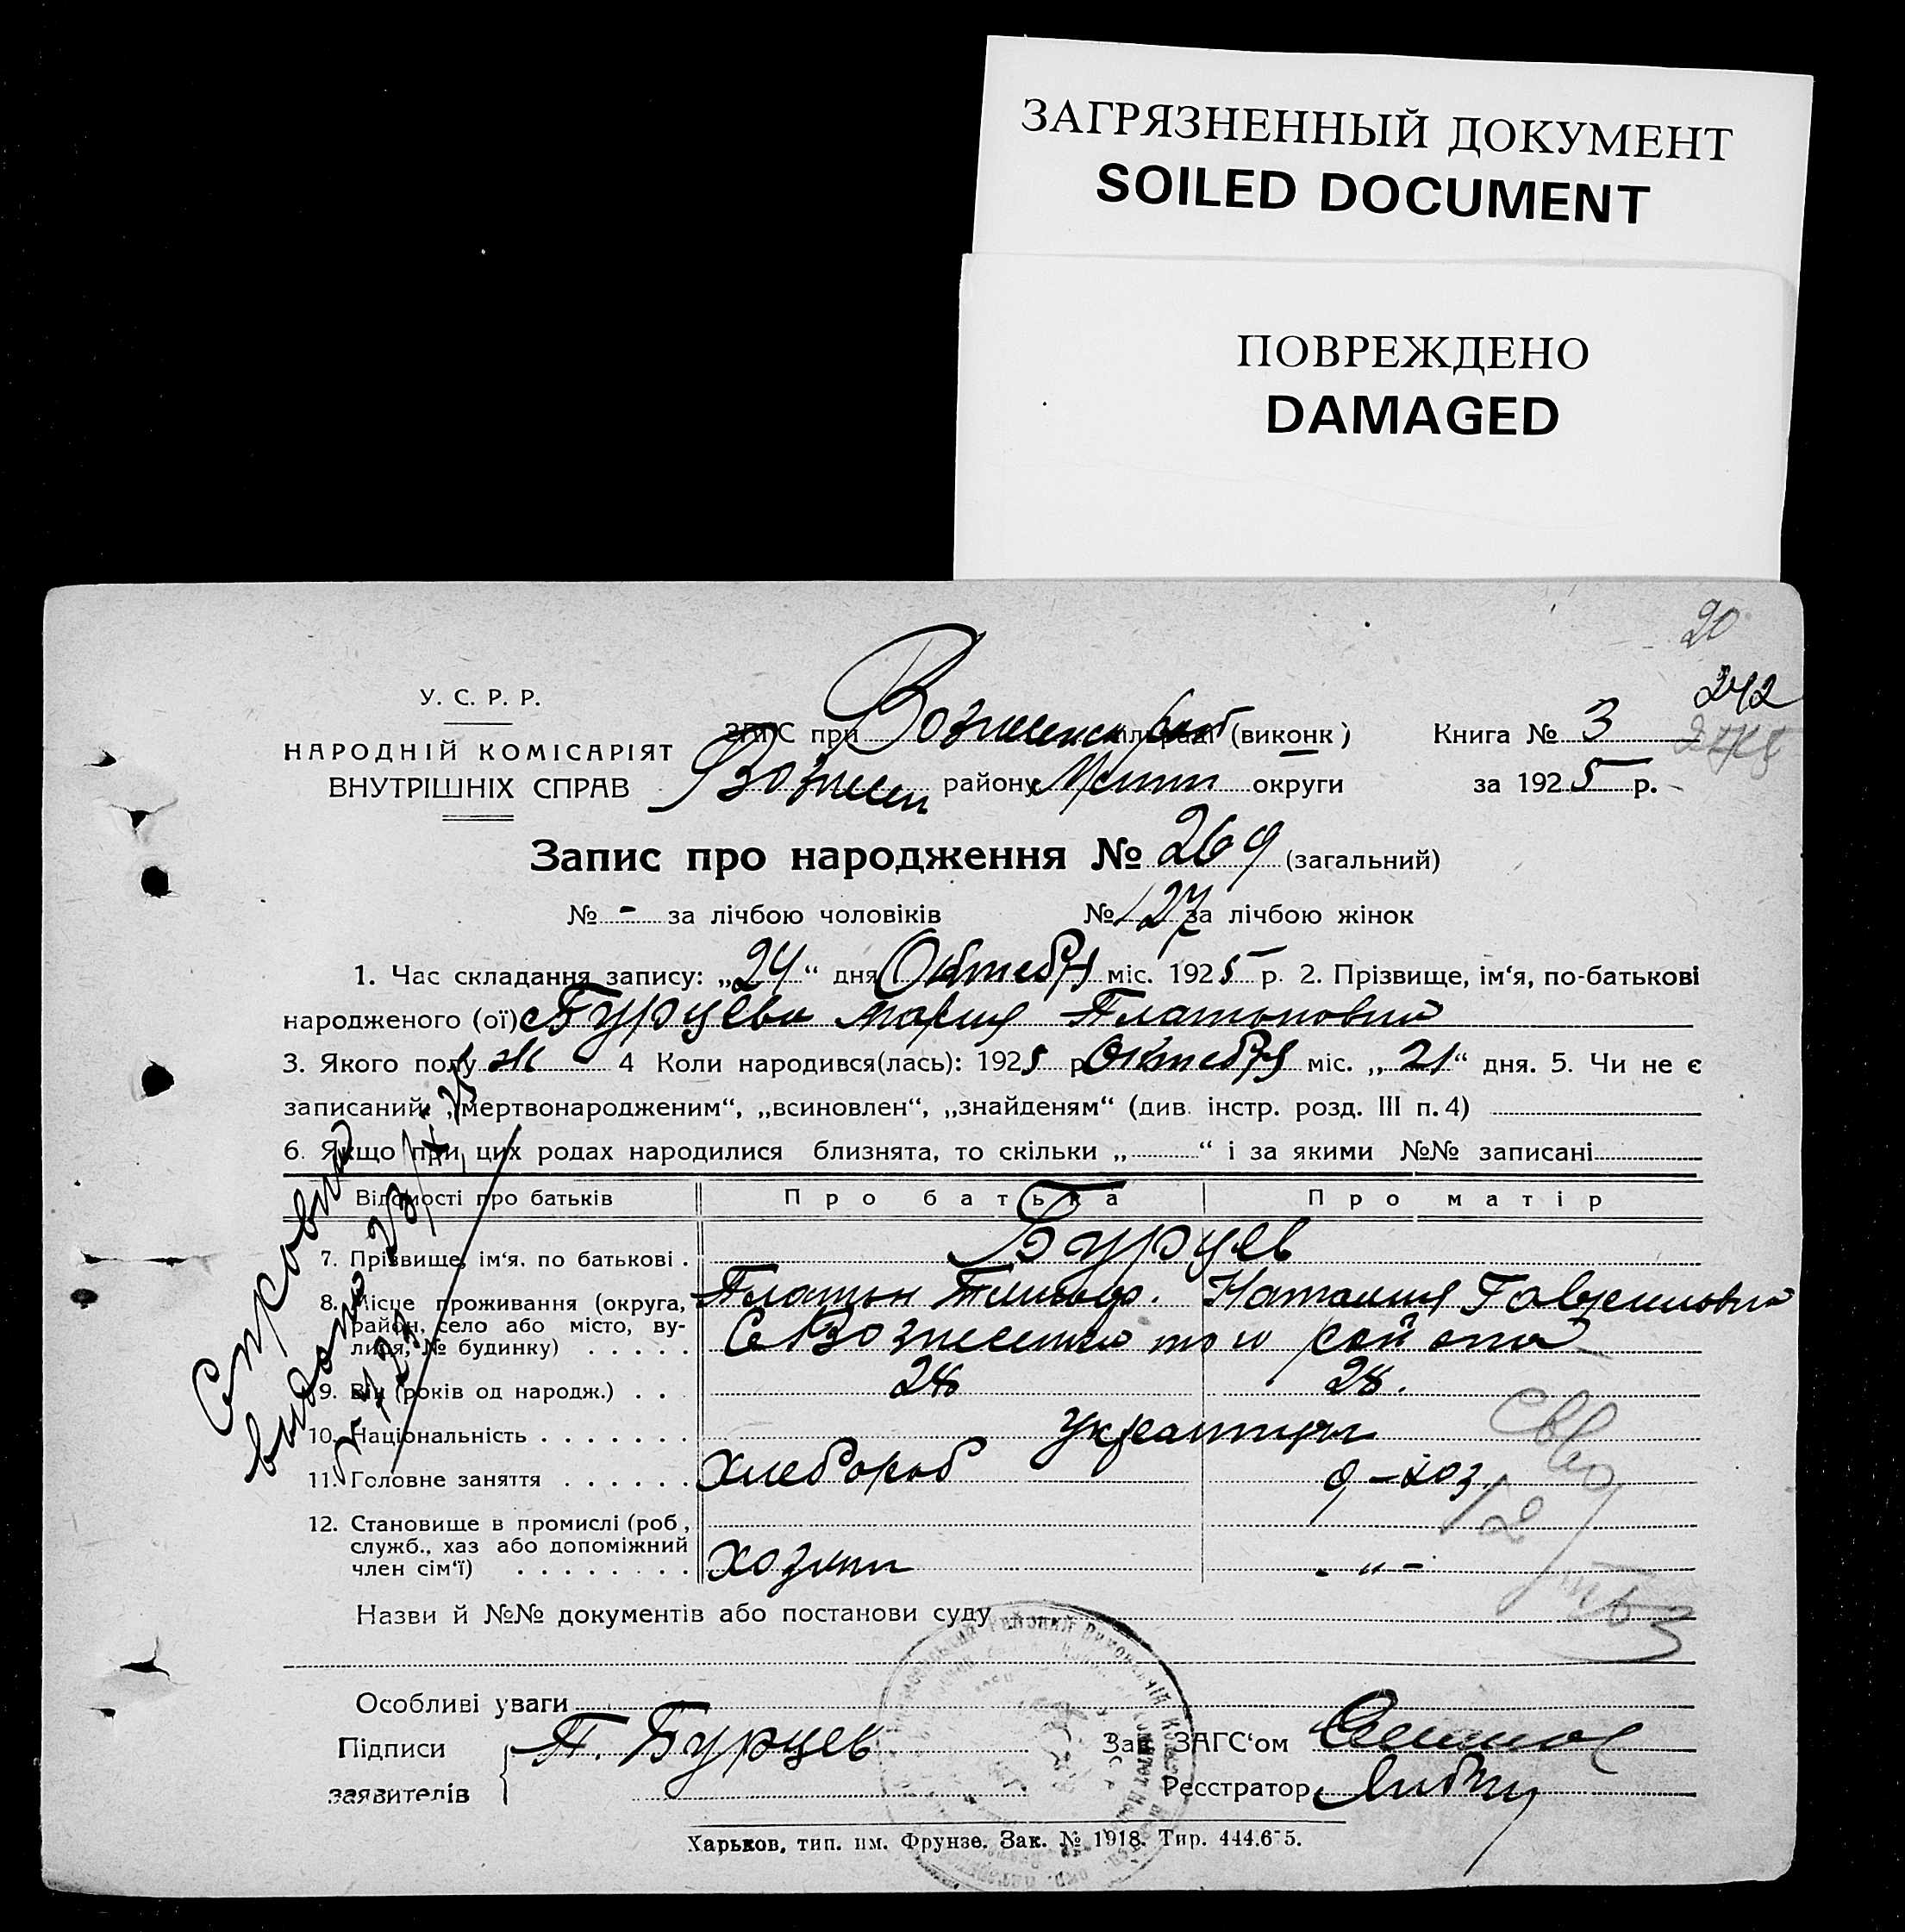 ЗАГРЯЗНЕННЫЙ ДОКУМЕНТ
SOILED DOCUMENT
ПОВРЕЖДЕНО
DAMAGED
20
242
У. С. Р. Р.
НАРОДНІЙ КОМІСАРІЯТ
ВНУТРІШНІХ СПРАВ
ЗАГС при (виконк) Книга № 3
району округи за 1925 р.
Запис про народження № 269 (загальний)
№ - за лічбою чоловіків № 127 за лічбою жінок
1. Час складання запису: „24“ дня Октября міс. 1925 р. 2. Прізвище, ім'я, по-батькові
народженого (ої) Бурцева Мария Платоновна
3. Якого полу ж 4 Коли народився(лась): 1925 р Октября міс. „21“ дня. 5. Чи не є
записаний: „мертвонародженим“, „всиновлен“, „знайденям“ (див. інстр. розд. III п. 4)
6. Якщо при цих родах народилися близнята, то скільки „ “ і за якими №№ записані
Відомості про батьків Про батька Про матір
7. Прізвище, ім'я. по батькові . Бурцев
Платон Наталия Гавриловна
8. Місце проживання (округа,
район, село або місто, ву-
лиця, № будинку) . . . . . с Вознесенка того района
9. Він (років од народж.) . . 28 28.
10. Національність . . . . . . . украинцы
11. Головне заняття . . . . . . Хлебороб д-хоз
12. Становище в промислі (роб,
служб., хаз або допоміжний
член сім'ї) . . . . . . . . хозяин - „ -
Назви й №№ документів або постанови суду
Особливі уваги
Підписи П. Бурцев Зав. ЗАГС'ом
заявителів Реєстратор
Харьков, тип. им. Фрунзе. Зак. № 1918. Тир. 444.675.
Справка
видана 23/X 25
№ 423